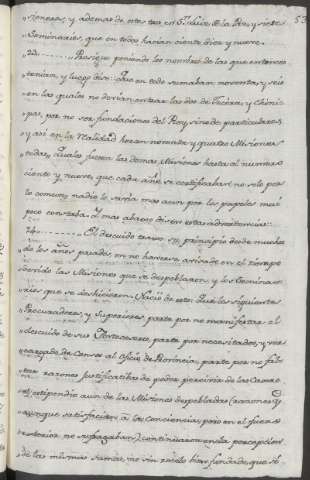 53
"siones, y ademas de estas tres en Sn. Luis de la Paz, y siete
"Seminarios, que en todo hacian ciento diez y nueve.
23 Prosigue poniendo los nombres de las que entonces
"tenian, y luego dice: Que en todo sumaban noventa, y seis
"en las quales no devian entrar las dos de
"pas, por no ser fundaciones del Rey, sino de particulares
"y asi en la realidad heran noventa y quatro Misiones
"todas. Quales fueran las demas Misiones hasta el numero
"ciento y nueve, que cada año se certificaban no solo por
"lo comun, nadie lo savia mas aun por los papeles mui
"poco constaba á mas abaxo dicen esta advertencia:
24 El descuido tenuo su principio desde muchos
"de los años pasados, en no haverse avisado en el tiempo
"devido las Misiones que se despoblaron y los Seminarios
"rios que se deshicieron. Nació de esto: Que los siguientes
"Procuradores, y Superiores parte por no manifestar el
"descuido de sus Antecesores, parte por necesitados, y mui
"cargada de Censos el oficio de Provincia, parte por no faltar
"tar razones justificatibas de poder percivir de las Caxas
"el estipendio aun de las Misiones despobladas (razones q.
"aunque satisfacien á la conciencia, pero en el fuero
"exterior no sufragaban) continuaron en la percepcion
"de las mismas sumas, no sin recelo bien fundado, que si